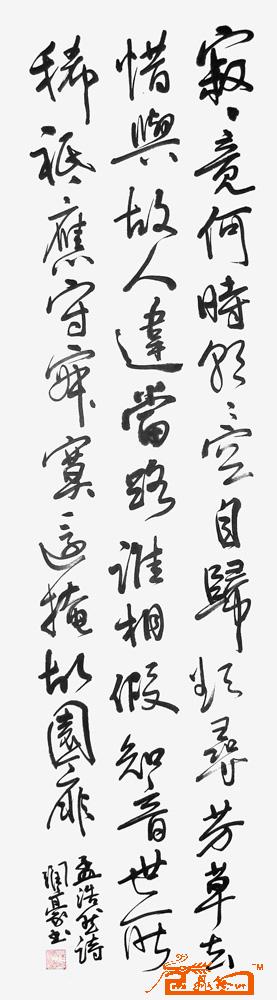 寂々竟何時朝々空自歸欲尋芳草去
惜與故人違當路誰相假知音世所
稀祗應守寂寞還掩故園扉
孟浩然詩
豪书